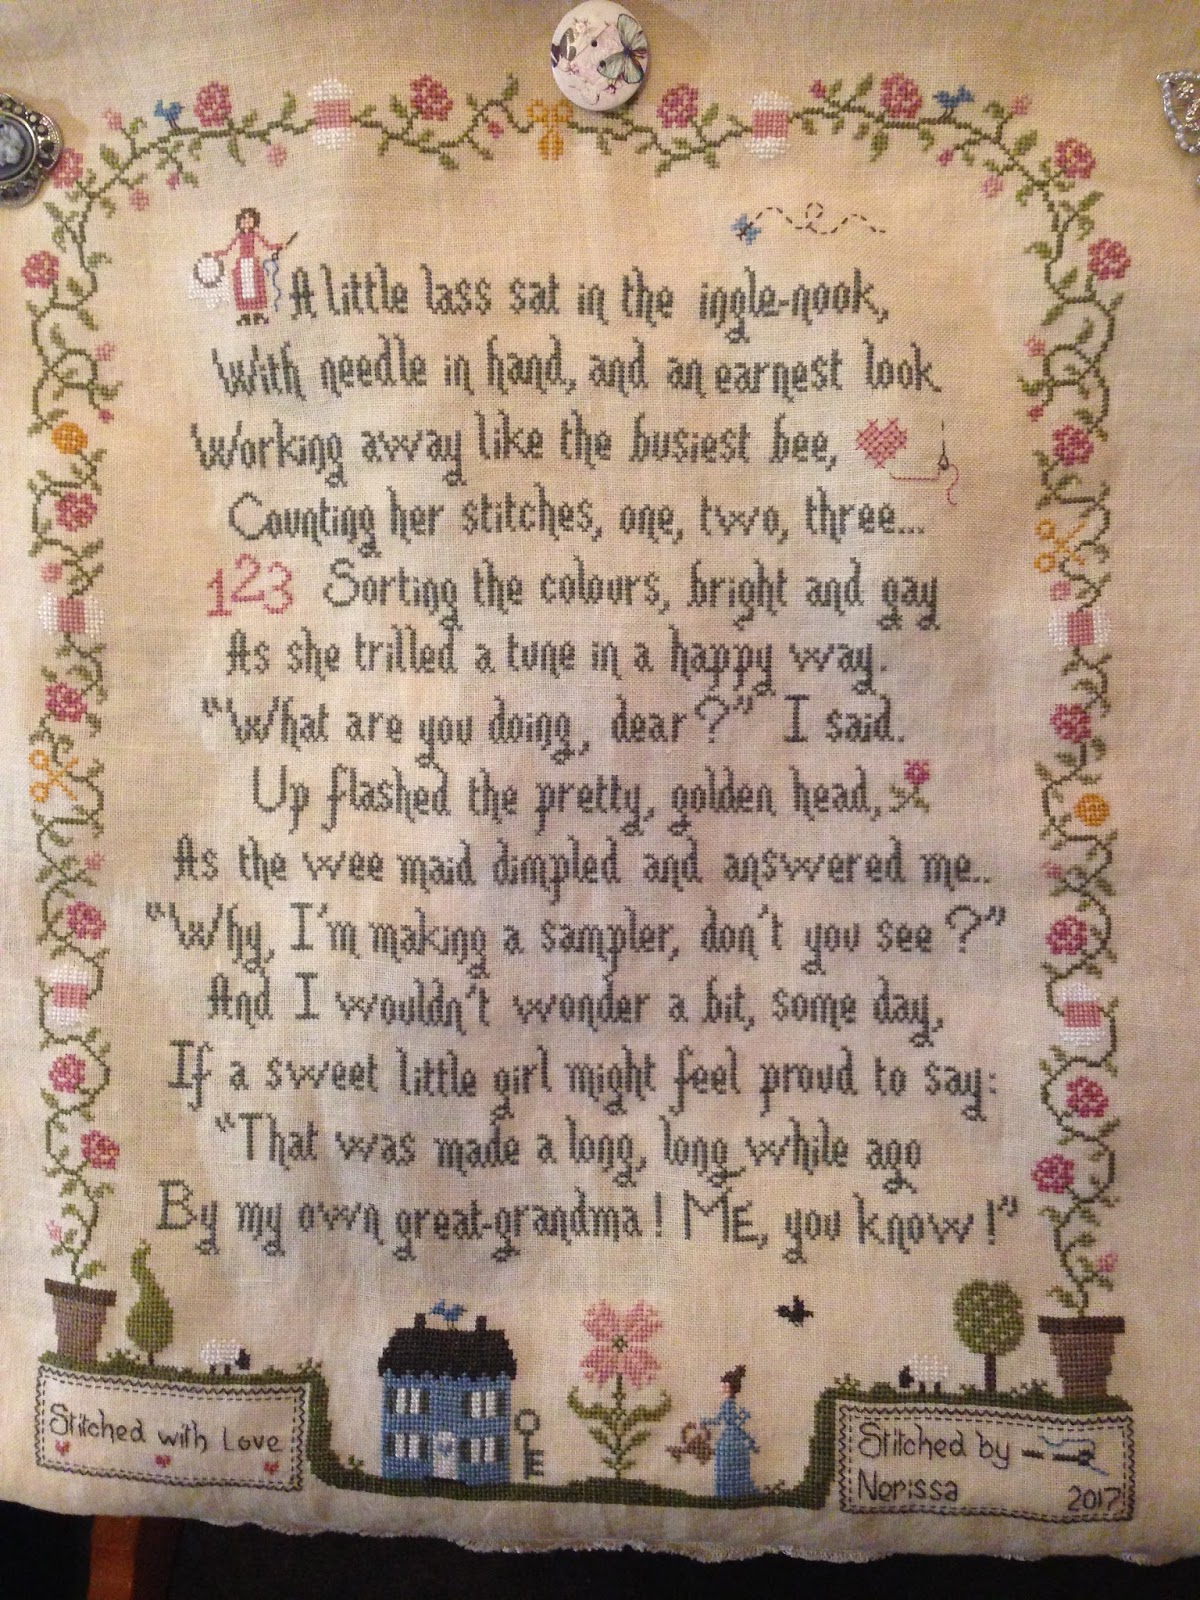 A little lass sat in the ingle-nook,
With needle in hand, and an earnest look.
Working away like the busiest bee,
Counting her stitches, one, two, three...
123 Sorting the colours, bright and gay
As she trilled a tune in a happy way.
"What are you doing, dear?" I said.
Up flashed the pretty, golden head,
As the wee maid dimpled and answered me..
"Why, I'm making a sampler, don't you see?"
And I wouldn't wonder a bit, some day,
If a sweet little girl might feel proud to say:
"That was made a long, long while ago
By my own great-grandma! ME, you know!"
Stitched with Love
Stitched by
Nerissa 2017